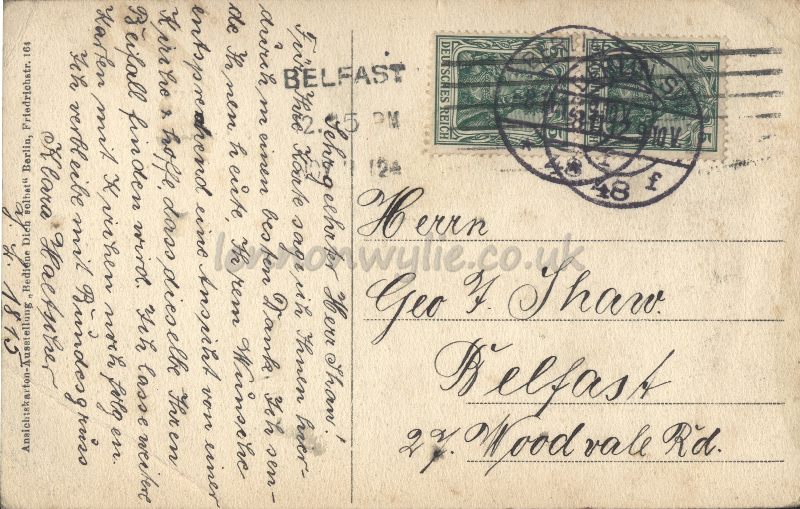 Sehr geehrter Herr Thaw!
Für Ihre Karte sage ich Ihnen hier-
durch meinen besten Dank. Ich sen-
de Ihnen heute Ihrem Wunsche
entsprechend eine Ansicht von einer
Kirche & hoffe dass dieselbe Ihren
Beifall finden wird. Ich lasse weitere
Karten mit Kirchen noch folgen.
Ich verbleibe mit Bundesgruss
Klara Walther
1813
Ansichtskarten-Ausstellung „Bediene Dich selbst" Berlin, Friedrichstr. 164
BELFAST
PM
12
DEUTSCHES REICH
5
5
5
5
BERLIN
48
f
Herrn
Geo F. Thaw.
Belfast
27. Woodvale Rd.
lennonwylie.co.uk